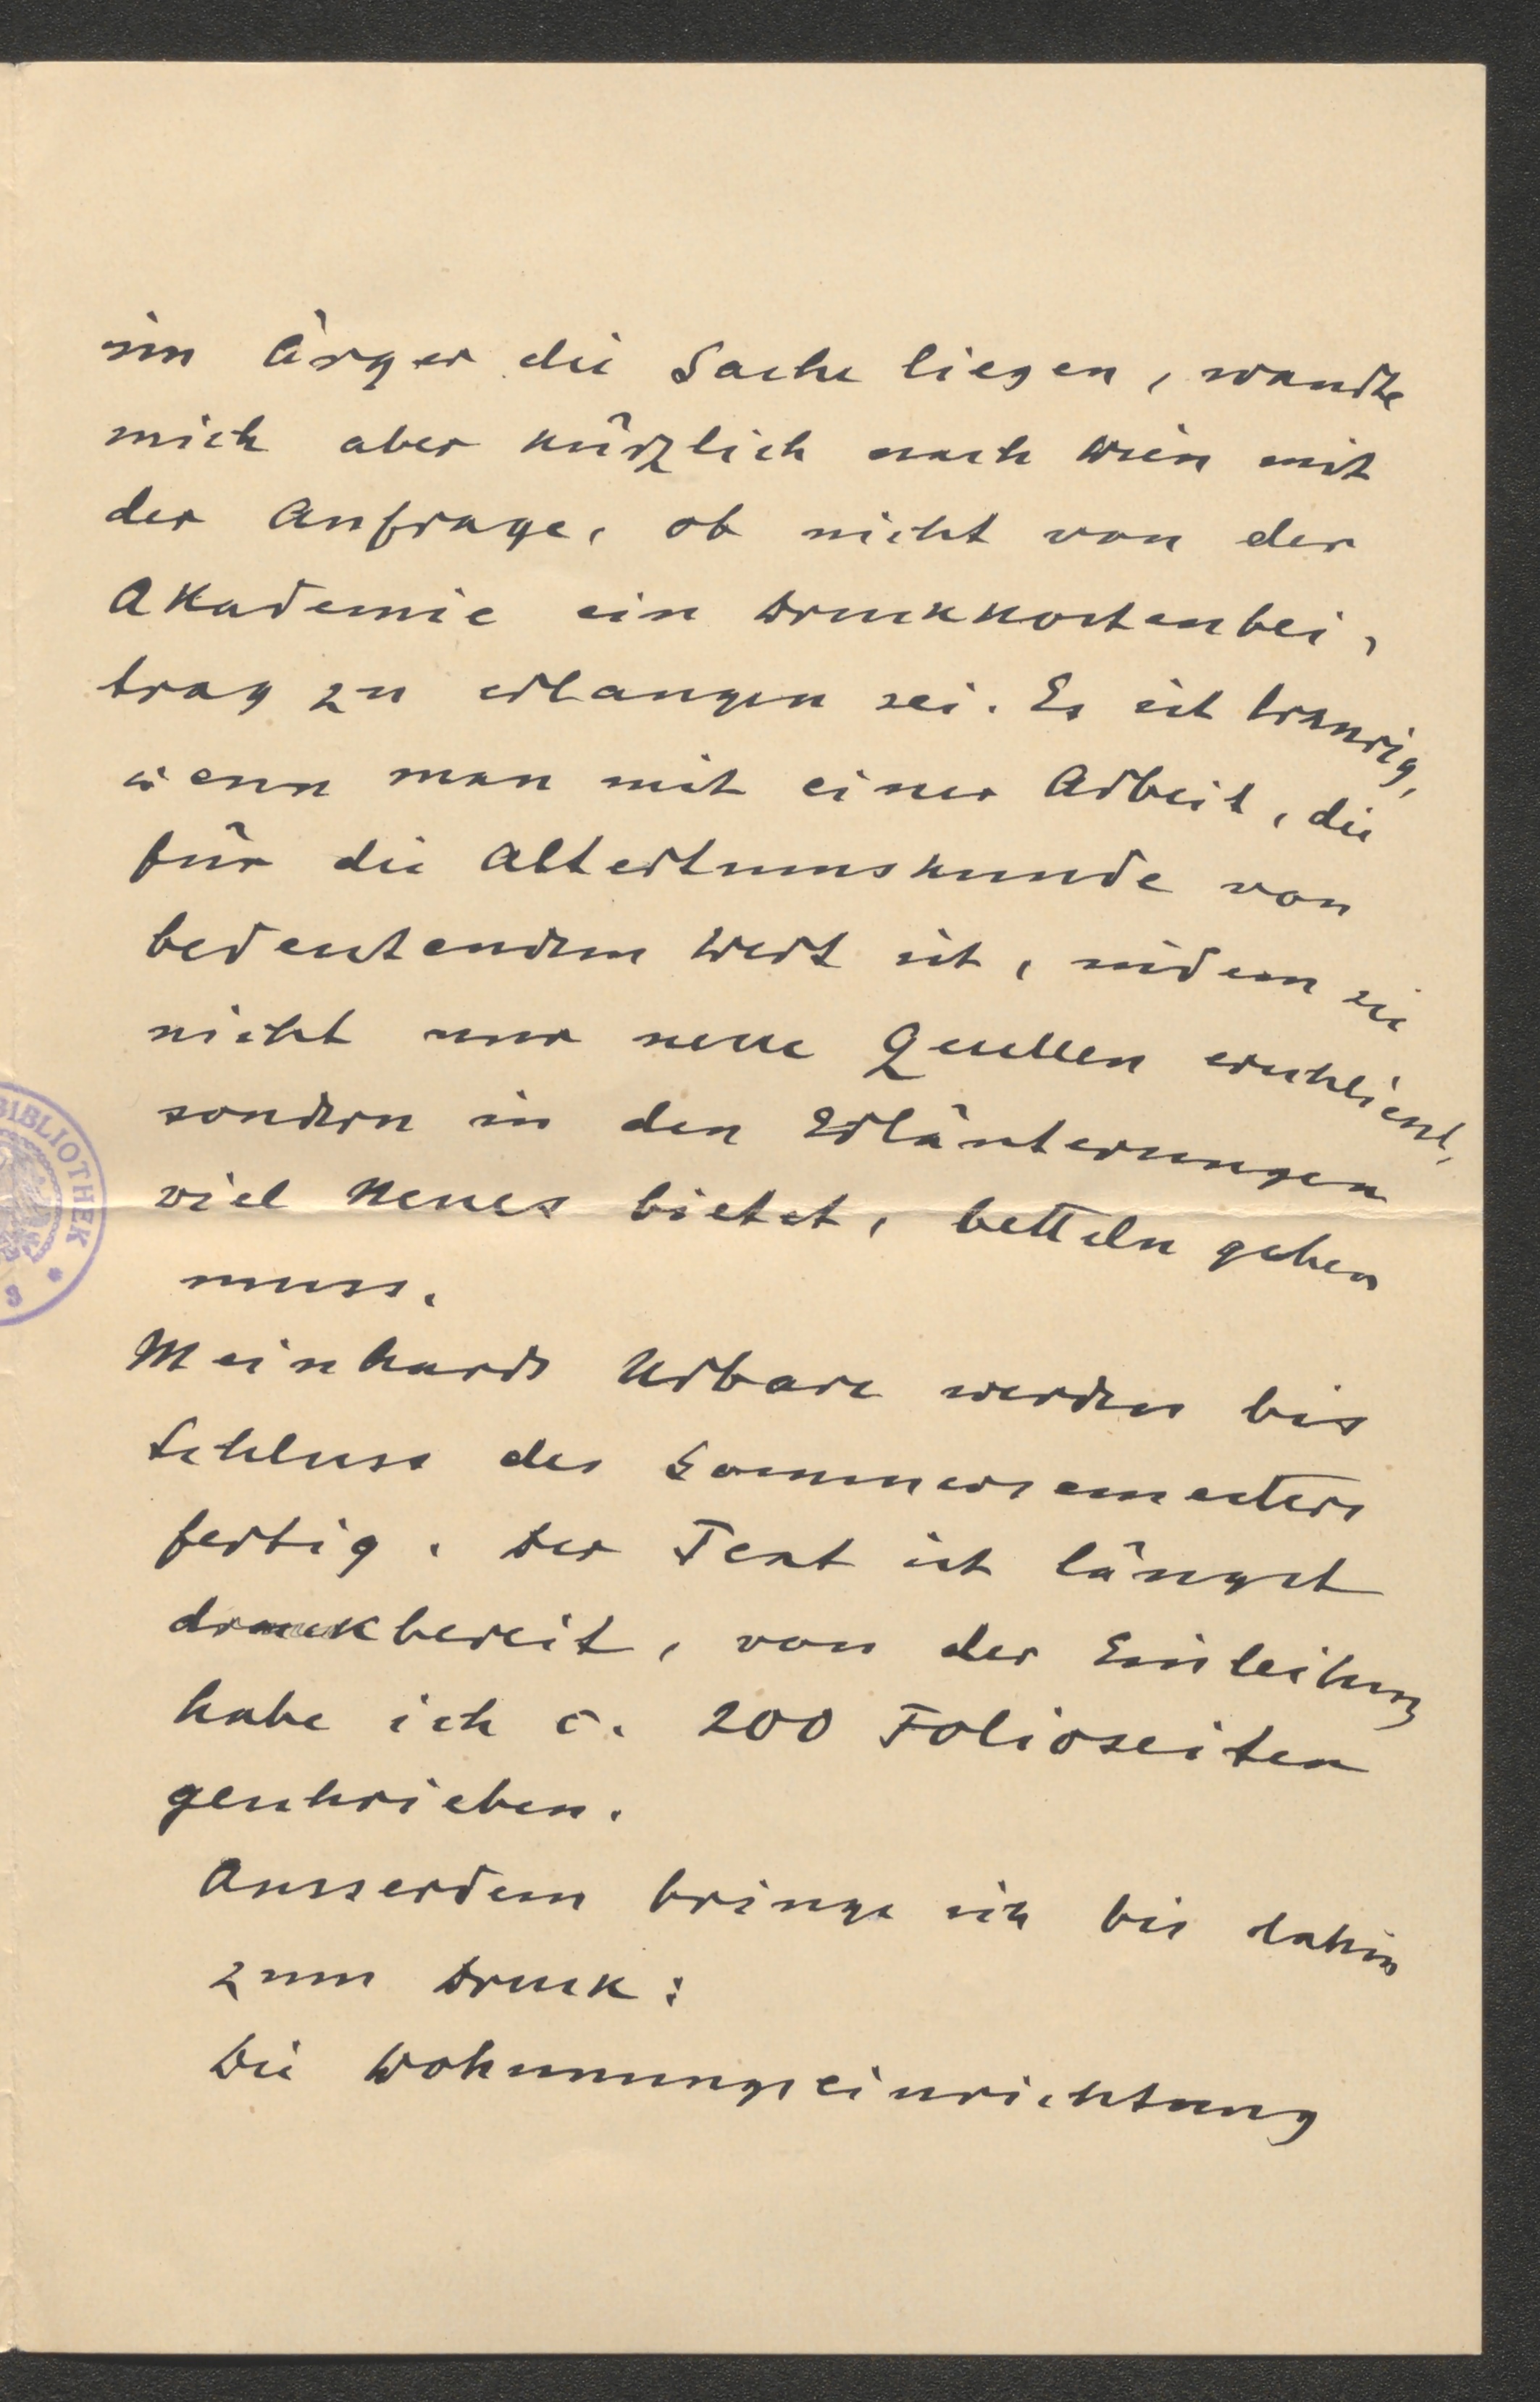 im Ärger die Sache liegen, wandte
mich aber kürzlich nach Wien mit
der Anfrage, ob nicht von der
Akademie ein Druckkostenbei-
trag zu erlangen sei. Es ist traurig,
wenn man mit einer Arbeit, die
für die Altertumskunde von
bedeutendem Wert ist, indem sie
nicht nur neue Quellen erschliesst,
sondern in den Erläuterungen
viel Neues bietet, betteln gehen
muss.
BIBLIOTHEK
Meinhards Urbare werden bis
Schluss des Sommersemesters
fertig. Der Text ist längst
druckbereit, von der Einleitung
habe ich c. 200 Folioseiten
geschrieben.
Ausserdem bringe ich bis dahin
zum Druck:
Die Wohnungseinrichtung